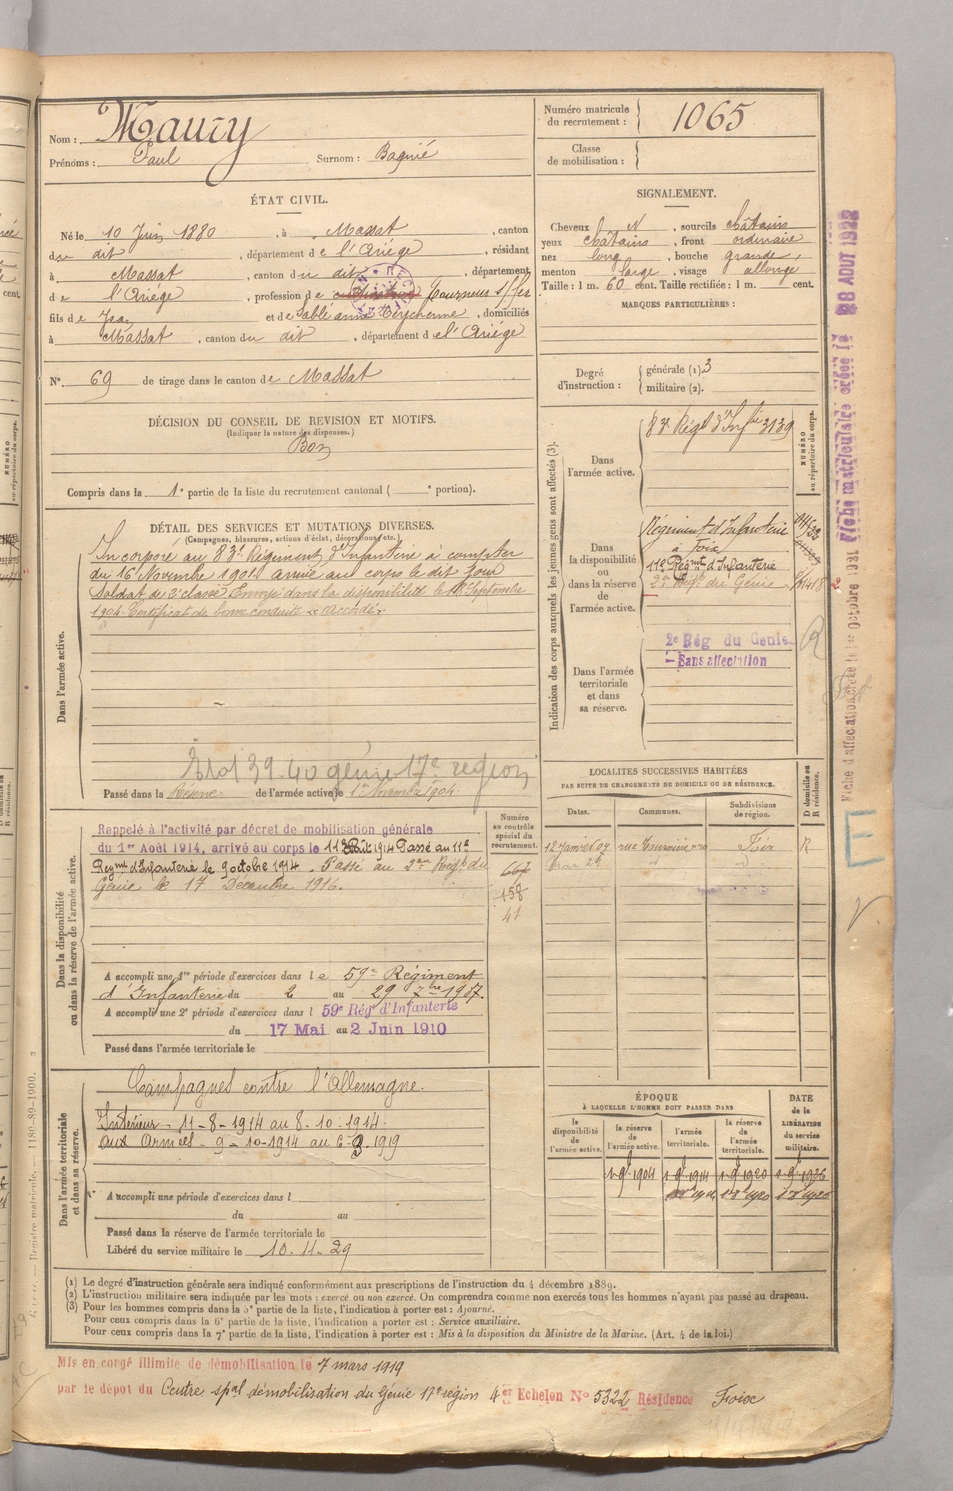 Nom : Maury
Prénoms : Paul Surnom : Bagnié
Numéro matricule du recrutement : 1065
Classe de mobilisation :
ÉTAT CIVIL.
Né le 10 Juin 1880, à Massat, canton
du dit, département de l'Ariège, résidant
à Massat, canton du dit, département
de l'Ariège, profession de Tourneur s/fer
fils de Jean et de Sablé anne domiciliés
à Massat, canton du dit, département de l'Ariège
N° 69 de tirage dans le canton de Massat
SIGNALEMENT.
Cheveux N, sourcils châtains
yeux châtains, front ordinaire
nez long, bouche grande,
menton large, visage allongé
Taille : 1 m. 60 cent. Taille rectifiée : 1 m. cent.
MARQUES PARTICULIÈRES :
Degré d'instruction : générale (1). 3
militaire (2).
DÉCISION DU CONSEIL DE REVISION ET MOTIFS.
(Indiquer la nature des dispenses.)
Bon
Compris dans la 1e partie de la liste du recrutement cantonal ( e portion).
DÉTAIL DES SERVICES ET MUTATIONS DIVERSES.
(Campagnes, blessures, actions d'éclat, décorations, etc.)
Dans l'armée active.
Incorporé au 83e Régiment d'Infanterie à compter
du 16 Novembre 1901 arrivé au corps le dit jour
Soldat de 2e classe. Envoyé dans la disponibilité le 18 Septembre
1904. Certificat de bonne conduite accordé.
39-40 génie 17e région
Passé dans la Réserve de l'armée active le 1er Novembre 1904.
Indication des corps auxquels les jeunes gens sont affectés (3).
NUMÉRO au répertoire du corps.
Dans l'armée active.
83e Régt d'Infie 3139
Dans la disponibilité ou dans la réserve de l'armée active.
Régiment d'Infanterie
à Foix
11e Régmt d'Infanterie
2e Régt du Génie
Dans l'armée territoriale et dans sa réserve.
2e Rég du Genie
Sans affectation
Dans la disponibilité ou dans la réserve de l'armée active.
Rappelé à l'activité par décret de mobilisation générale
du 1er Août 1914, arrivé au corps le 11 Août 1914 Passé au 11e
Regmt d'Infanterie le 9 octobre 1914. Passé au 2me Regt du
Génie le 17 Décembre 1916.
Numéro au contrôle spécial du recrutement.
667
158
41
A accompli une 1re période d'exercices dans le 59e Régiment
d'Infanterie du 2 au 29 7bre 1907.
A accompli une 2e période d'exercices dans l 59e Rég d'Infanterie
du 17 Mai au 2 Juin 1910
Passé dans l'armée territoriale le
LOCALITES SUCCESSIVES HABITÉES
PAR SUITE DE CHANGEMENTS DE DOMICILE OU DE RÉSIDENCE.
Dates. Communes. Subdivisions de région. D domicile ou R résidence.
12 Janvier 09 Foix R
Dans l'armée territoriale et dans sa réserve.
Campagnes contre l'Allemagne.
Intérieur - 11-8-1914 au 8.10-1914.
Aux Armées - 9-10-1914 au 6-3 1919
A accompli une période d'exercices dans l
du au
Passé dans la réserve de l'armée territoriale le
Libéré du service militaire le 10-11-29
ÉPOQUE
À LAQUELLE L'HOMME DOIT PASSER DANS
la disponibilité de l'armée active. la réserve de l'armée active. l'armée territoriale. la réserve de l'armée territoriale.
DATE de la LIBÉRATION du service militaire.
1-9bre 1904 1-9bre 1914 1-9bre 1920 1-9bre 1926
(1) Le degré d'instruction générale sera indiqué conformément aux prescriptions de l'instruction du 4 décembre 1889.
(2) L'instruction militaire sera indiquée par les mots : exercé ou non exercé. On comprendra comme non exercés tous les hommes n'ayant pas passé au drapeau.
(3) Pour les hommes compris dans la 5e partie de la liste, l'indication à porter est : Ajourné.
Pour ceux compris dans la 6e partie de la liste, l'indication à porter est : Service auxiliaire.
Pour ceux compris dans la 7e partie de la liste, l'indication à porter est : Mis à la disposition du Ministre de la Marine. (Art. 4 de la loi.)
Mis en congé illimité de démobilisation le 7 mars 1919
par le dépôt du Centre spal démobilisation du Génie 17e région 4er Echelon N° 5322 Résidence Foix
Fiche matriculaire créée le 28 AOUT 1922
Fiche d'affectation créée le 1er Octobre 1931
Registre matricule. — 1180-89-1900.
E